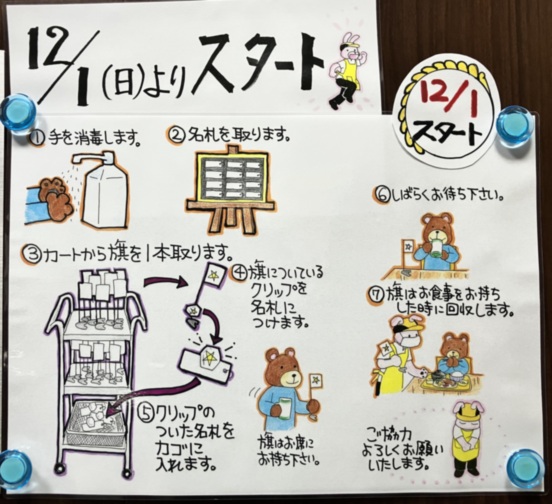 12/1(日)よりスタート
12/1
スタート
①手を消毒します。
②名札を取ります。
③カートから旗を1本取ります。
④旗についている
クリップを
名札に
つけます。
⑤クリップの
ついた名札を
カゴに
入れます。
旗はお席に
お持ち下さい。
⑥しばらくお待ち下さい。
⑦旗はお食事をお持ち
した時に回収します。
ご協力
よろしくお願い
いたします。